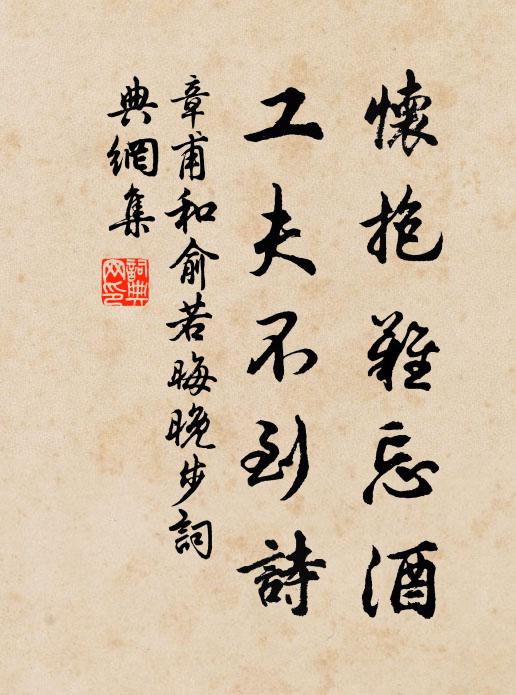 懷抱難忘酒
工夫不到詩
章甫和俞若晦晚步詞
典網集
詞典
网印